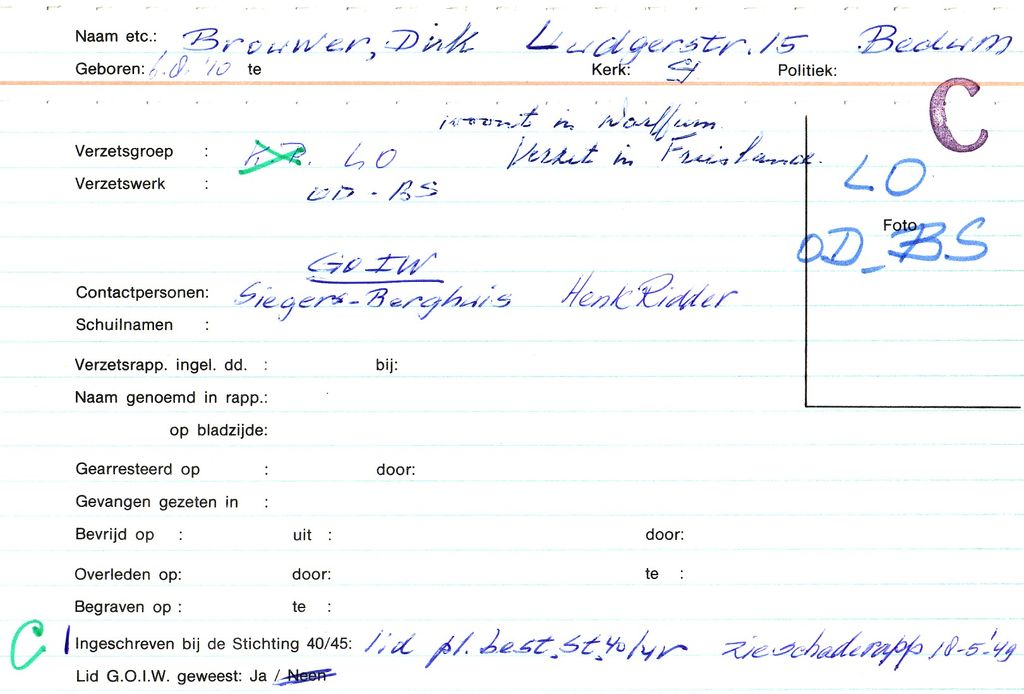 Naam etc.: Brouwer, Dirk Ludgerstr. 15 Bedum
Geboren: 6.8.'10 te Kerk: Politiek:
C
woont in Warffum
Verzetsgroep : K.P. LO Verzet in Freisland.
Verzetswerk : OD - BS
LO
Foto
OD - BS
GOIW
Contactpersonen: Siegers-Berghuis Henk Ridder
Schuilnamen :
Verzetsrapp. ingel. dd. : bij:
Naam genoemd in rapp.:
op bladzijde:
Gearresteerd op : door:
Gevangen gezeten in :
Bevrijd op : uit : door:
Overleden op: door: te :
Begraven op : te :
C Ingeschreven bij de Stichting 40/45: lid pl. best. St. 40/45 zie schaderapp 18-5-'49
Lid G.O.I.W. geweest: Ja / Neen